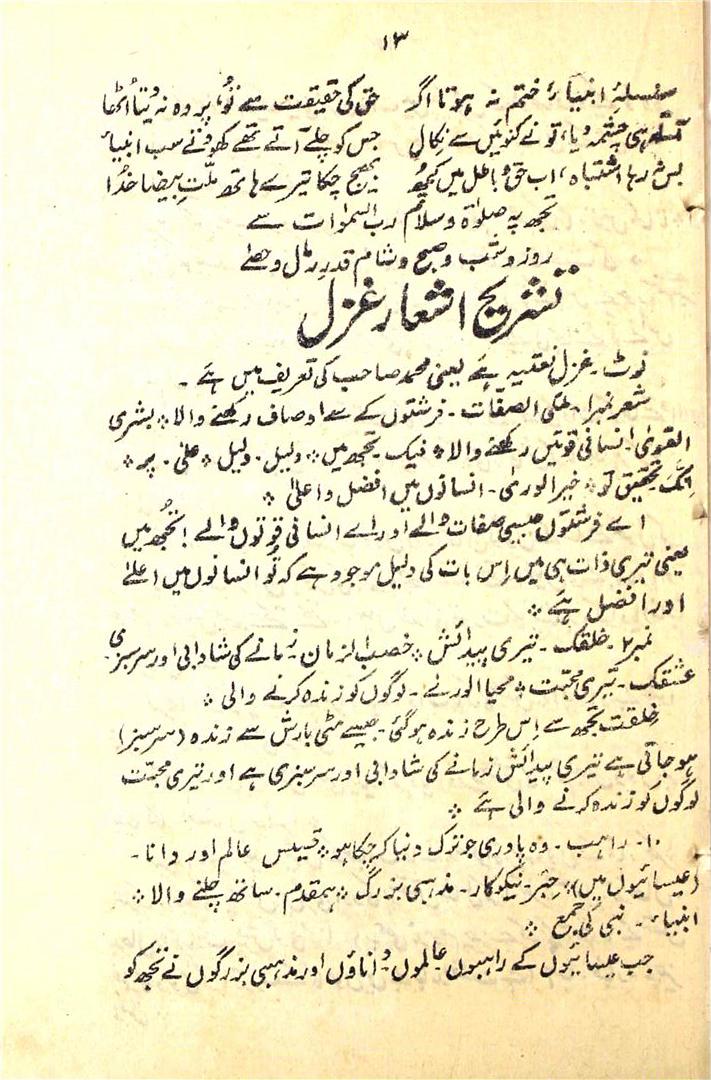 ۱۳
سلسلۂ انبیاءؑ ختم نہ ہوتا اگر حق کی حقیقت سے تُو، پردہ نہ دیتا اُٹھا
آتے ہی چشمہ دیا، تو نے کنوئیں سے نکال جس کو چلے آتے تھے کھودتے سب انبیاءؑ
بس نہ رہا اشتباہ، اب حق و باطل میں کچھ بھیج چکا تیرے ہاتھ ملّتِ بیضا خدا
تجھ پہ صلوٰۃ و سلام رب السمٰوات سے
روز و شب و صبح و شام قدر رمال و حصےٰ
تشریح اشعار غزل
نوٹ۔ غزل نعتیہ ہے یعنی محمدؐ صاحب کی تعریف میں ہے۔
شعر نمبر۱۔ ملکی الصفات۔ فرشتوں کے سے اوصاف رکھنے والا * بشری
القویٰ۔ انسانی قوتیں رکھنے والا * فیک۔ تجھ میں * دلیل۔ دلیل * علیٰ۔ پر *
انک۔ تحقیق تو * خیر الوریٰ۔ انسانوں میں افضل و اعلیٰ *
اے فرشتوں جیسی صفات والے اور اے انسانی قوتوں والے! تجھ میں
یعنی تیری ذات ہی میں اِس بات کی دلیل موجود ہے کہ تُو انسانوں میں اعلےٰ
اور افضل ہے *
نمبر۲۔ خلقک۔ تیری پیدائش * خصب الزمان۔ زمانے کی شادابی اور سرسبزی
عشقک۔ تیری محبت * محیا الورےٰ۔ لوگوں کو زندہ کرنے والی *
خلقت تجھ سے اِس طرح زندہ ہو گئی۔ جیسے مٹی بارش سے زندہ (سرسبز)
ہو جاتی ہے تیری پیدائش زمانے کی شادابی اور سرسبزی ہے اور تیری محبت
لوگوں کو زندہ کرنے والی ہے *
۱۰۔ راہب۔ وہ پادری جو ترک دنیا کر چکا ہو * قسیس عالم اور دانا۔
(عیسائیوں میں) * حِبر۔ نیکو کار۔ مذہبی بزرگ * ہمقدم۔ ساتھ چلنے والا *
انبیاء۔ نبی کی جمع *
جب عیسائیوں کے راہبوں۔ عالموں۔ داناؤں اور مذہبی بزرگوں نے تجھ کو